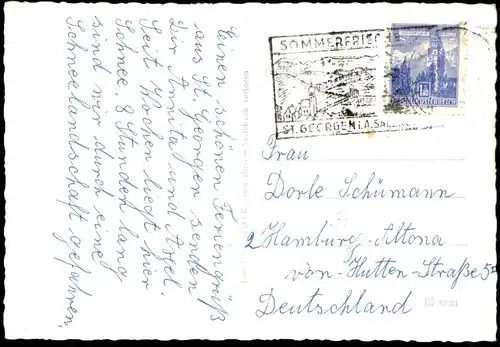 Einen schönen Feriengruß
aus St. Georgen senden
Dir Annita und Axel.
Seit Wochen liegt hier
Schnee. 8 Stunden lang
sind wir durch eine
Schneelandschaft gefahren.
SOMMERFRISCHE
ST. GEORGEN I.A.
ÖSTERREICH
Frau
Dorle Schümann
2 Hamburg-Altona
von-Hutten-Straße 5
Deutschland
verboten